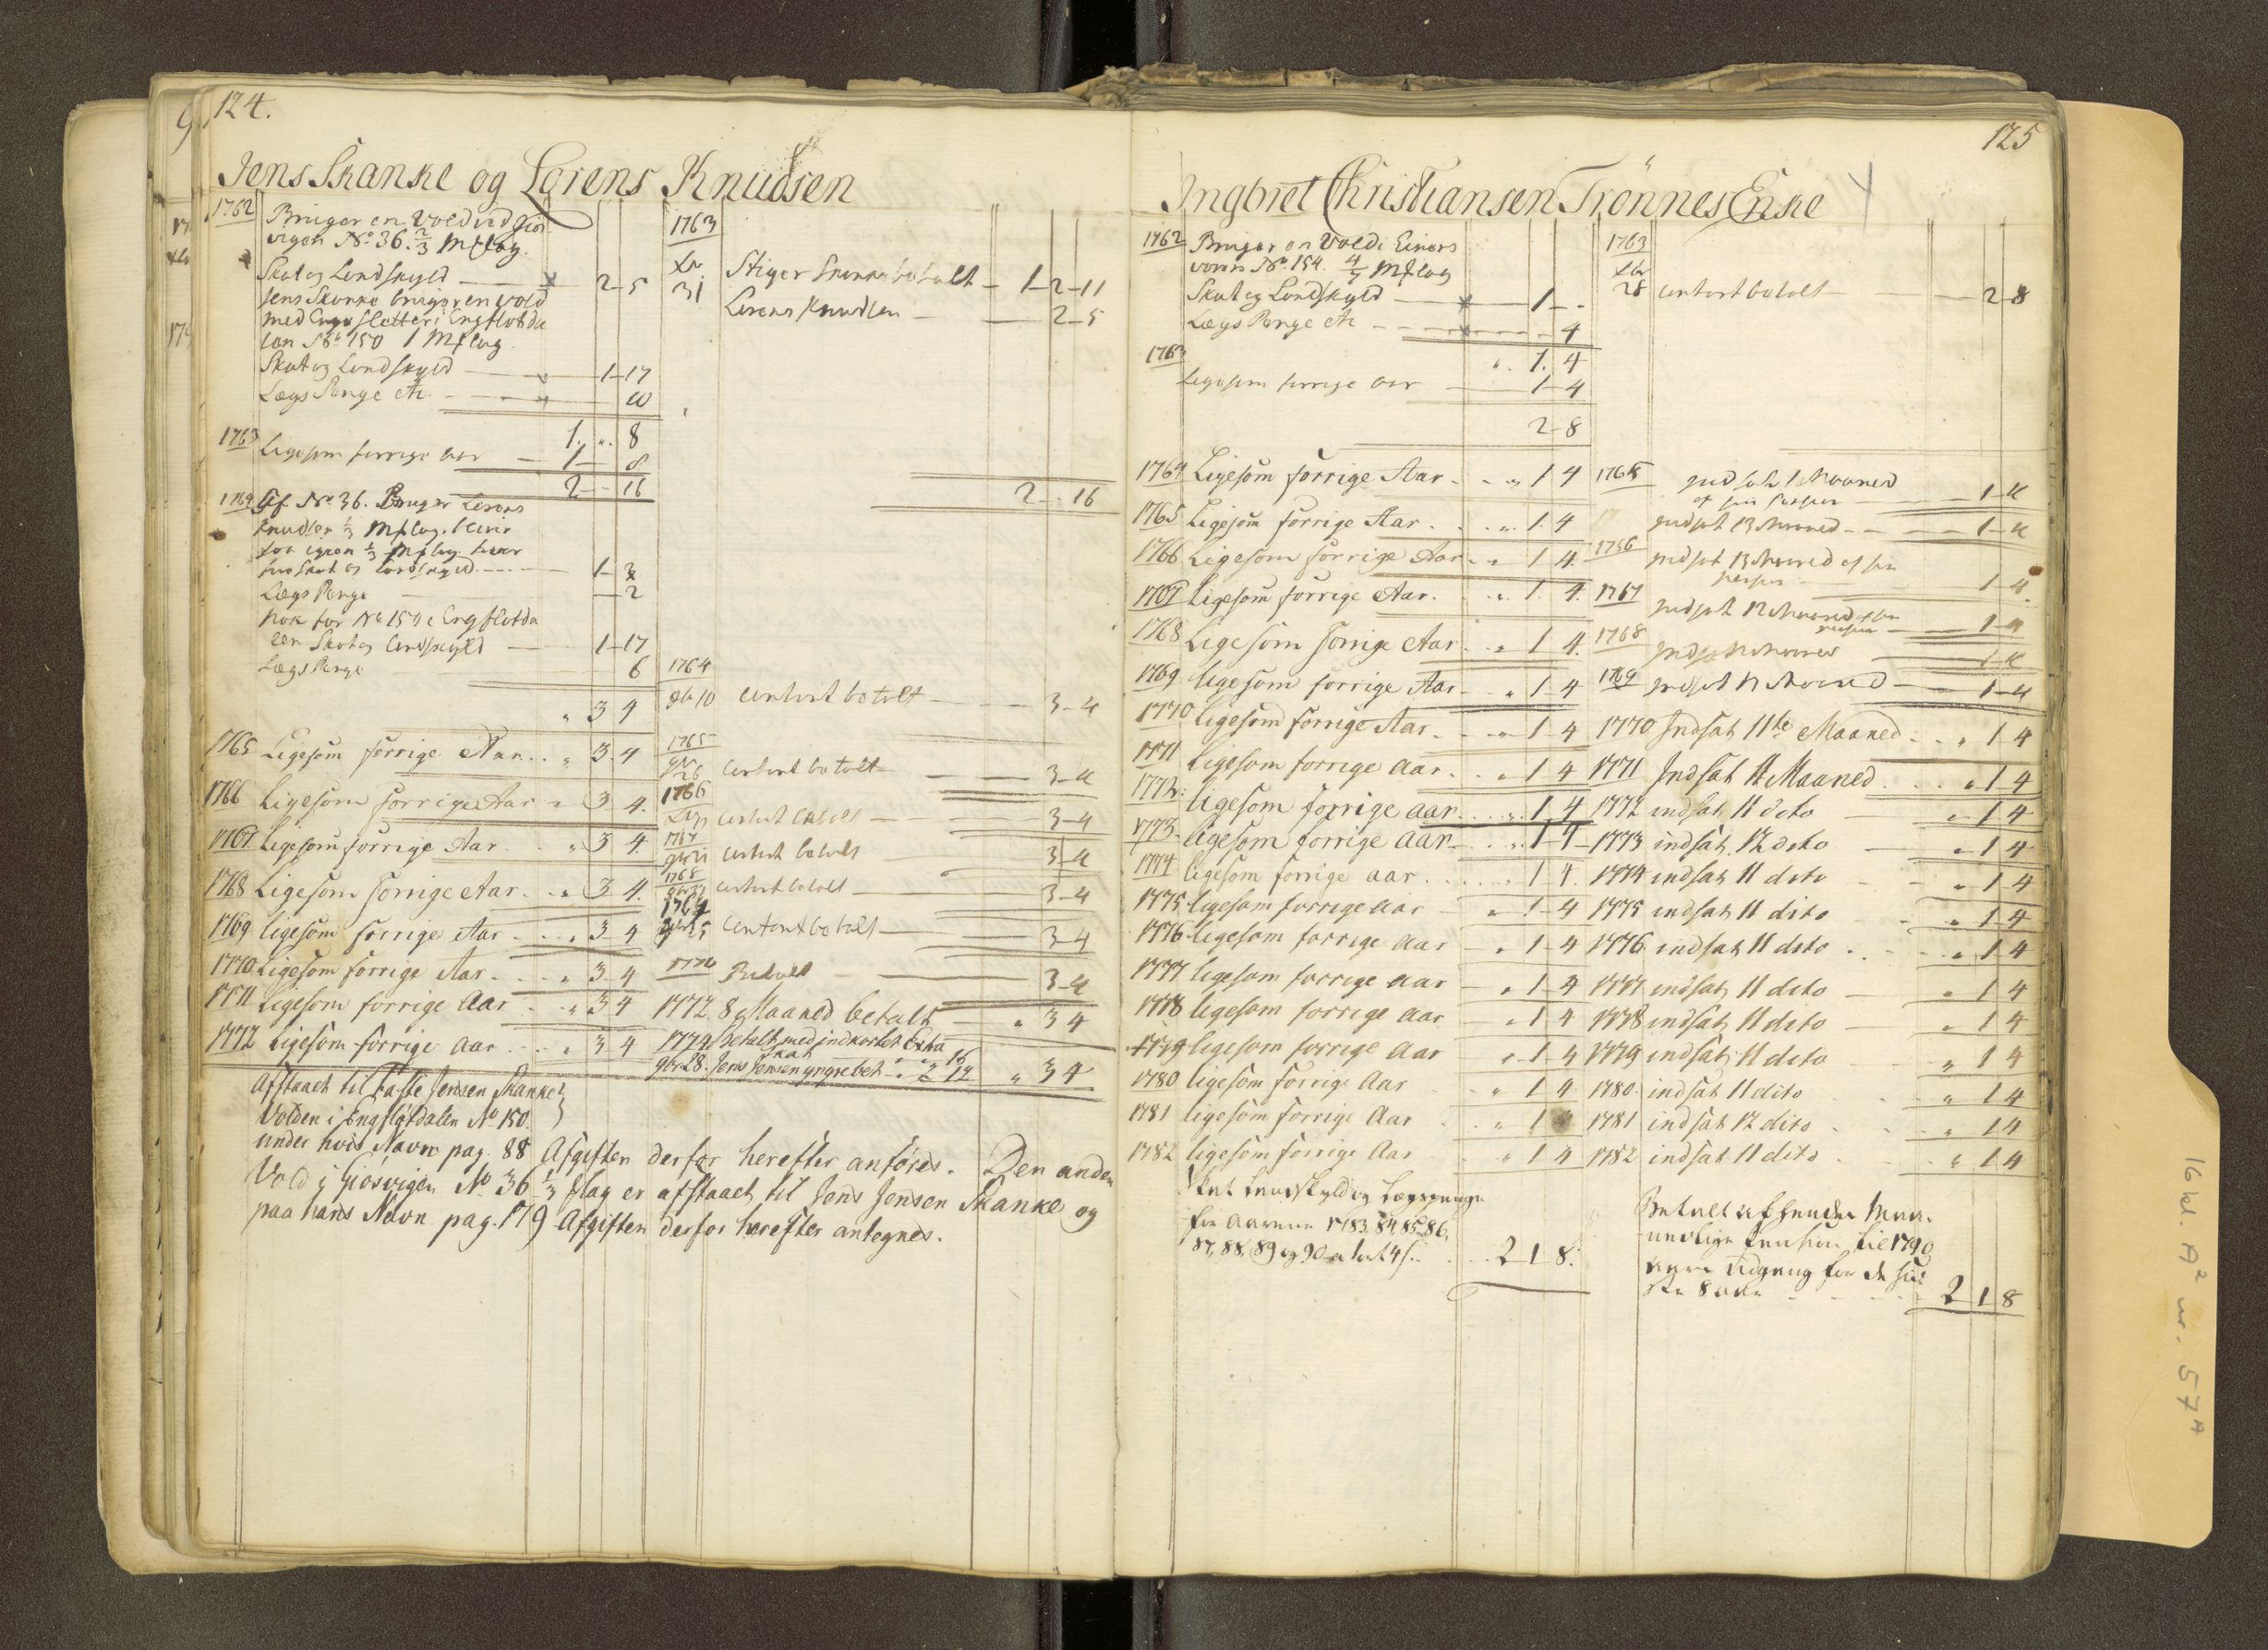 124.
Jens Skanke og Lorens Knudsen
1762 Bruger en Vold ved Giös
vigen No. 36. 2/3 Mslag.
Skat og Landskyld 2-5
Jens Skanke bruger en vold
med Enge sletter i Engflotda
len No. 150 1 Mslag
Skat og Landskyld 1-17
Lægs Penge etc. 10
1. ". 8
1763 Ligesom forrige aar 1- 8
2-16
1764 Af No. 36. Bruger Lorens
Knudsen 1/3 Mslag. blevir
for igien 1/3 Mslag hvor
Skat og Landskyld 1-3
Lægs Penge 2
Nok for No 150 i Engflotda
len Skat og Landskyld 1-17
Lægs Penge 6
" 3 4
1765 Ligesom forrige Aar. . " 3 4
1766 Ligesom forrige Aar " 3 4.
1767 Ligesom forrige Aar. . " 3 4.
1768 Ligesom forrige Aar. . " 3 4.
1769 ligesom forrige Aar . . " 3 4
1770 Ligesom forrige Aar. . " 3 4
1771 Ligesom forrige Aar . " 3 4
1772 Ligesom forrige Aar . . " 3 4
Afstaaet til Faste Jensen Skanke
Volden i Engflotdalen No. 150.
under hvis Navn pag. 88 Afgiften derfor herefter anföres. Den anden
Vold i Giösvigen No. 36 1/3 slag er afstaaet til Jens Jensen Skanke og
paa hans Navn pag. 179 Afgiften derfor herefter antegnes.
1763
Xbr
31 Stiger Skanke betalt 1-2-11
Lorens Knudsen 2-5
2-16
1764
10 contant betalt 3-4
1765
26 contant betalt 3-4
1766
contant betalt 3-4
1767
contant betalt 3-4
1768
contant betalt 3-4
1769
contant betalt 3-4
1770 Betalt 3-4
1772. 8 Maaned betalt " 3 4
1774. betalt med indkortet Extra
Skat " " 16
9br 28. Jens Jensen yngre bet " 2 12 " 3 4
125
Ingbret Christiansen Trönnes Enke
1762 Bruger en Vold i Einers
voren No. 154. 4/7 Mslag
Skat og Landskyld 1 -
Lægs Penge etc 4
". 1. 4
1763
Ligesom forrige aar 1-4
2-8
1764 Ligesom forrige Aar. . " 1 4
1765 Ligesom forrige Aar. . ". 1. 4
1766 Ligesom forrige Aar. " 1 4.
1767 Ligesom forrige Aar. . ". 1. 4.
1768 Ligesom forrige Aar. " 1 4.
1769 ligesom forrige Aar " 1-4
1770 Ligesom forrige Aar. . " 1 4
1771 Ligesom forrige aar . . " 1 4
1772. ligesom forrige aar. . ". 1 4
1773. ligesom forrige aar. . ". 1-4
1774 ligesom forrige aar . . . 1-4.
1775 ligesom forrige aar " 1-4
1776 ligesom forrige aar " 1-4
1777 ligesom forrige aar " 1 4
1778 ligesom forrige aar " 1 4
1779 ligesom forrige Aar " 1-4
1780 ligesom forrige Aar " 1 4
1781 ligesom forrige Aar " 1
1782 ligesom forrige Aar " 1 4
Skat Landskyld og Lægspenge
for Aarene 1783, 84, 85, 86,
87, 88, 89 og 90 a 1 ort 4 s. . . 2 1 8.
1763
Xbr
28 contant betalt 2-8
1765 Indsat 1 Maaned
af sin Pension 1-4
Indsat 13 Maaned 1-4
1766 Indsat 13 Maaned af sin
Pension 1-4.
1767 Indsat 12 Maaned af sin
Pension 1-4
1768 Indsat Maaned 1-4
1769 Indsat 11 Maaned 1-4
1770 Indsat 11te Maaned . . " 1 4
1771 Indsat 11 Maaned. . . " 1 4
1772 indsat 11 dito " 1 4
1773 indsat 12 dito " 1 4
1774 indsat 11 dito " 1 4
1775 indsat 11 dito " 1 4
1776. indsat 11 dito . . " 1 4
1777 indsat 11 dito " 1 4
1778 indsat 11 dito " 1 4
1779 indsat 11 dito " 1 4
1780. indsat 11 dito " 1 4
1781 indsat 12 dito . " 1 4
1782 indsat 11 dito . " 1 4
Betalt af hendes Maa-
nedlige Pension til 1790
Aars Udgang for de sid
ste 8 Aar 2 1 8
16 kl. A² nr. 57ᴬ